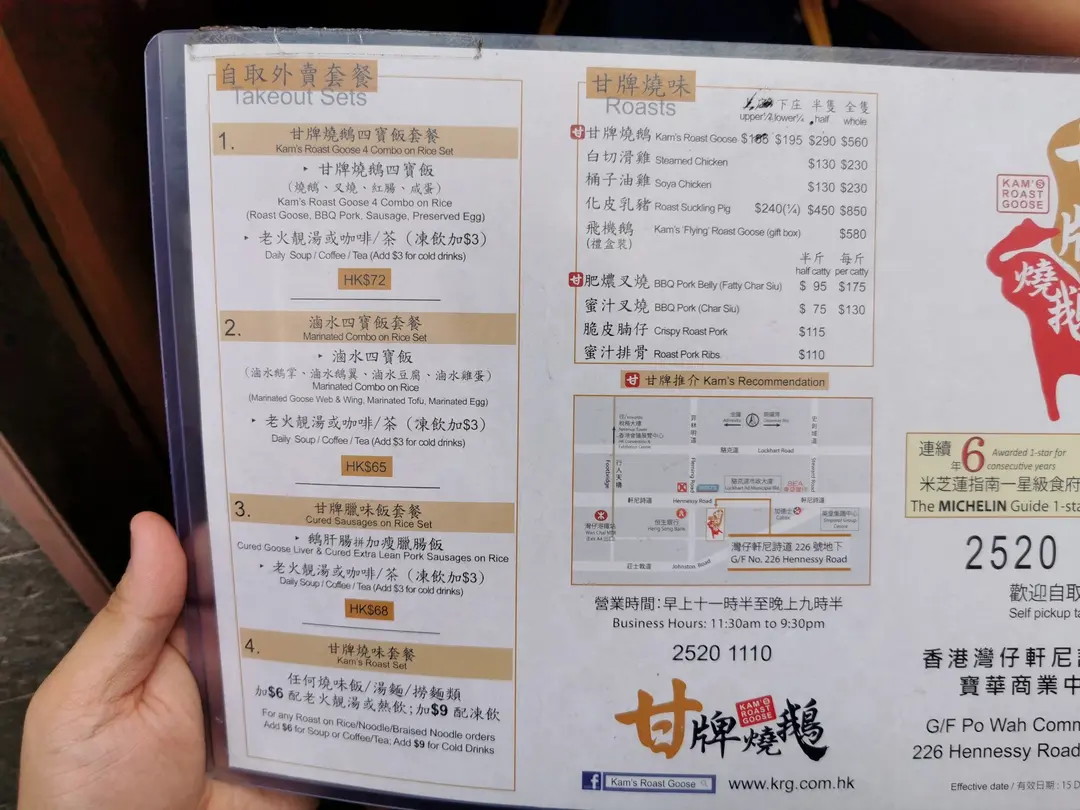 自取外賣套餐
Takeout Sets
1. 甘牌燒鵝四寶飯套餐
Kam's Roast Goose 4 Combo on Rice Set
‣ 甘牌燒鵝四寶飯
(燒鵝、叉燒、紅腸、咸蛋)
Kam's Roast Goose 4 Combo on Rice
(Roast Goose, BBQ Pork, Sausage, Preserved Egg)
‣ 老火靚湯或咖啡/茶 (凍飲加$3)
Daily Soup / Coffee / Tea (Add $3 for cold drinks)
HK$72
2. 滷水四寶飯套餐
Marinated Combo on Rice Set
‣ 滷水四寶飯
(滷水鵝掌、滷水鵝翼、滷水豆腐、滷水雞蛋)
Marinated Combo on Rice
(Marinated Goose Web & Wing, Marinated Tofu, Marinated Egg)
‣ 老火靚湯或咖啡/茶 (凍飲加$3)
Daily Soup / Coffee / Tea (Add $3 for cold drinks)
HK$65
3. 甘牌臘味飯套餐
Cured Sausages on Rice Set
‣ 鵝肝腸拼加瘦臘腸飯
Cured Goose Liver & Cured Extra Lean Pork Sausages on Rice
‣ 老火靚湯或咖啡/茶 (凍飲加$3)
Daily Soup / Coffee / Tea (Add $3 for cold drinks)
HK$68
4. 甘牌燒味套餐
Kam's Roast Set
任何燒味飯/湯麵/撈麵類
加$6 配老火靚湯或熱飲;加$9 配凍飲
For any Roast on Rice/Noodle/Braised Noodle orders
Add $6 for Soup or Coffee/Tea; Add $9 for Cold Drinks
甘牌燒味
Roasts
下庄 半隻 全隻
upper½ lower¼ half whole
甘 甘牌燒鵝 Kam's Roast Goose $195 $290 $560
白切滑雞 Steamed Chicken $130 $230
桶子油雞 Soya Chicken $130 $230
化皮乳豬 Roast Suckling Pig $240(¼) $450 $850
飛機鵝 Kam's 'Flying' Roast Goose (gift box) $580
(禮盒裝)
半斤 每斤
half catty per catty
甘 肥燶叉燒 BBQ Pork Belly (Fatty Char Siu) $ 95 $175
蜜汁叉燒 BBQ Pork (Char Siu) $ 75 $130
脆皮腩仔 Crispy Roast Pork $115
蜜汁排骨 Roast Pork Ribs $110
甘 甘牌推介 Kam's Recommendation
駱克道 Lockhart Road
Footbridge
行人天橋
Fleming Road
菲林明道
Stewart Road
史釗域道
駱克道市政大廈
BEA
軒尼詩道 Hennessy Road 軒尼詩道
灣仔港鐵站
Wan Chai MTR
(Exit A4 出口)
恒生銀行
Hang Seng Bank
加德士
Caltex
集成集團中心
灣仔軒尼詩道 226 號地下
G/F No. 226 Hennessy Road
莊士敦道 Johnston Road
營業時間: 早上十一時半至晚上九時半
Business Hours: 11:30am to 9:30pm
2520 1110
甘牌燒鵝
KAM'S ROAST GOOSE
Kam's Roast Goose
www.krg.com.hk
KAM'S
ROAST
GOOSE
牌
燒
鵝
連續6年
Awarded 1-star for
consecutive years
米芝蓮指南一星級食府
The MICHELIN Guide 1-sta
2520
歡迎自取
Self pickup ta
香港灣仔軒尼詩
寶華商業中
G/F Po Wah Comm
226 Hennessy Road
Effective date / 有效日期 : 15 D